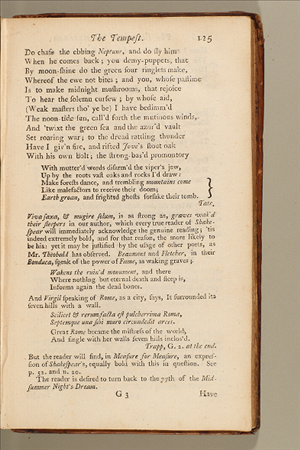 The Tempest. 125
Do chase the ebbing Neptune, and do fly him
When he comes back; you demy-puppets, that
By moon-shine do the green sour ringlets make,
Whereof the ewe not bites; and you, whose pastime
Is to make midnight mushrooms, that rejoice
To hear the solemn curfew; by whose aid,
(Weak masters tho' ye be) I have bedimm'd
The noon-tide sun, call'd forth the mutinous winds,
And 'twixt the green sea and the azur'd vault
Set roaring war; to the dread rattling thunder
Have I giv'n fire, and rifted Jove's stout oak
With his own bolt; the strong-bas'd promontory
With mutter'd words disarm'd the viper's jaw,
Up by the roots vast oaks and rocks I'd draw:
Make forests dance, and trembling mountains come
Like malefactors to receive their doom;
Earth groan, and frighted ghosts forsake their tomb.
Tate,
Viva saxa, & mugire solum, is as strong as, graves wak'd
their sleepers in our author, which every true reader of Shake-
spear will immediately acknowledge the genuine reading; 'tis
indeed extremely bold, and for that reason, the more likely to
be his: yet it may be justified by the usage of other poets, as
Mr. Theobald has observed. Beaumont and Fletcher, in their
Bonduca, speak of the power of Fame, as waking graves;
Wakens the ruin'd monument, and there
Where nothing but eternal death and sleep is,
Informs again the dead bones.
And Virgil speaking of Rome, as a city, says, It surrounded its
seven hills with a wall.
Scilicet & rerum facta est pulcherrima Roma,
Septemque una sibi muro circumdedit arces.
Great Rome became the mistress of the world,
And single with her walls seven hills inclos'd.
Trapp, G. 2. at the end.
But the reader will find, in Measure for Measure, an expres-
sion of Shakespear's, equally bold with this in question. See
p. 52. and n. 20.
The reader is desired to turn back to the 77th of the Mid-
summer Night's Dream.
G 3 Have